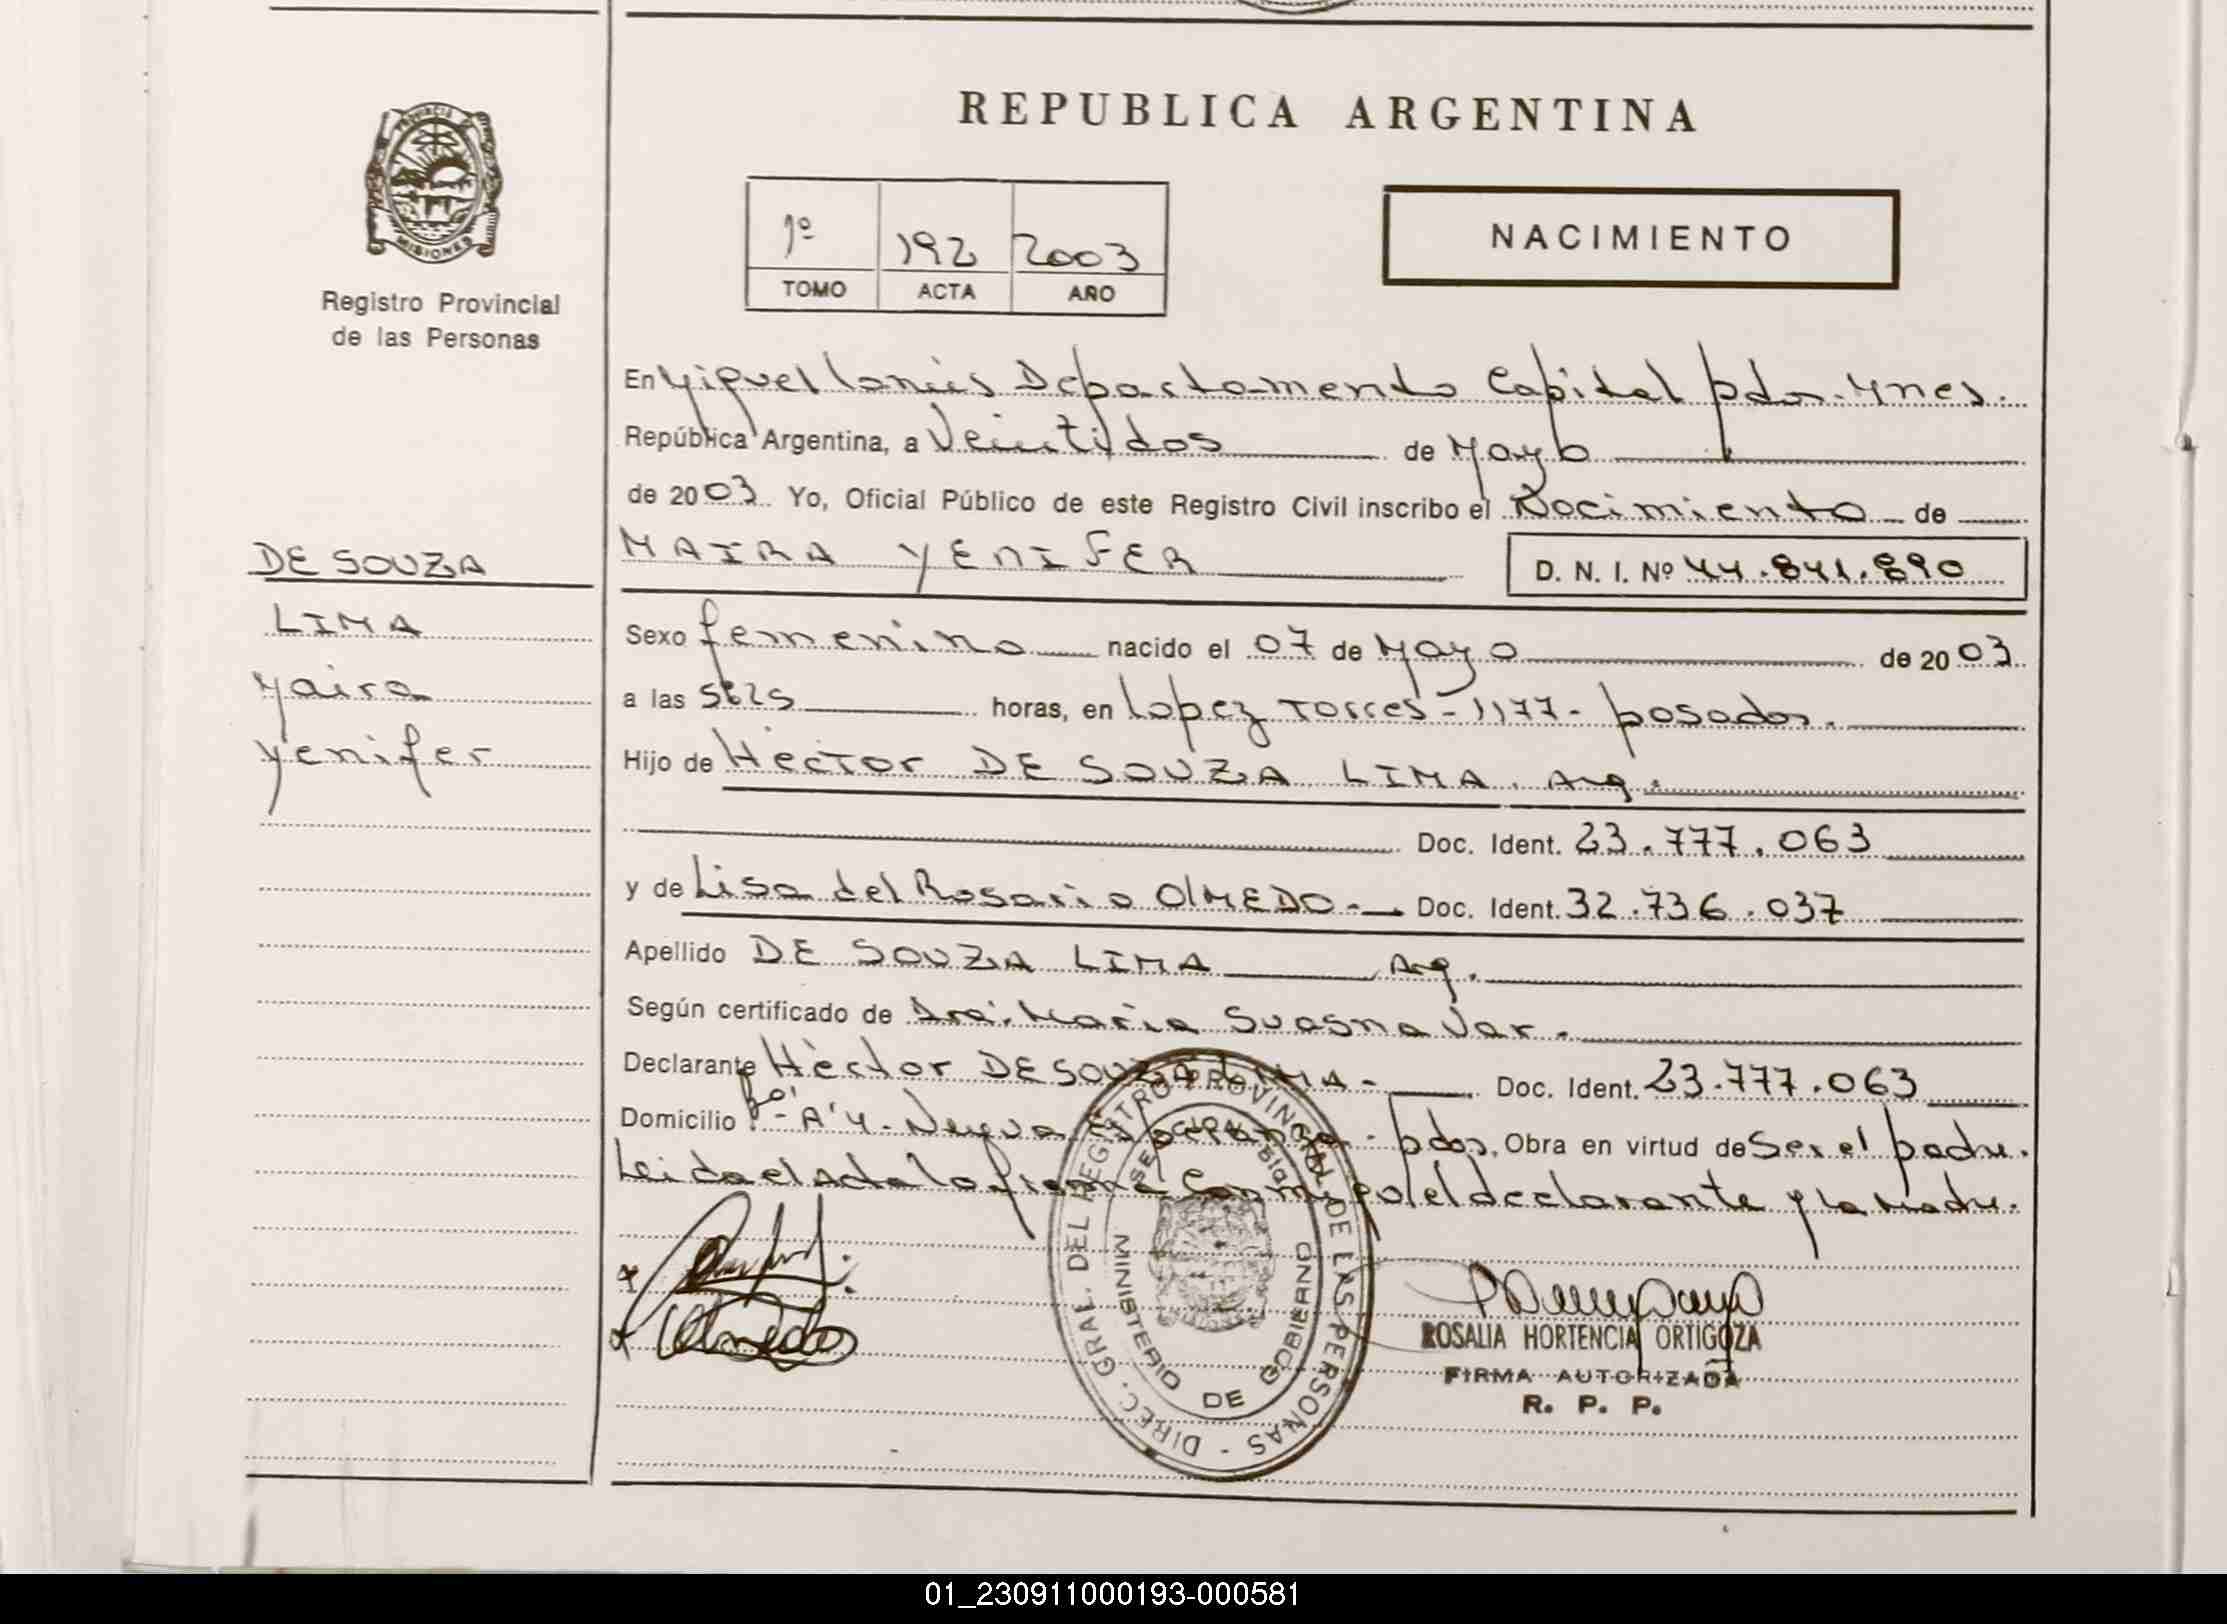 REPUBLICA ARGENTINA
PROVINCIA DE
MISIONES
Registro Provincial
de las Personas
1º 192 2003
TOMO ACTA AÑO
NACIMIENTO
En Miguel Lanús Departamento Capital pdas. Mnes.
República Argentina, a Veintidos de Mayo
de 2003 Yo, Oficial Público de este Registro Civil inscribo el Nacimiento de
MAIRA YENIFER D. N. I. Nº 44.841.890
DE SOUZA
LIMA
Maira
Yenifer
Sexo femenino nacido el 07 de Mayo de 2003
a las 5 horas, en Lopez Torres - 1177 - posadas.
Hijo de Hèctor DE SOUZA LIMA. Arg.
Doc. Ident. 23.777.063
y de Lisa del Rosario OLMEDO. Doc. Ident. 32.736.037
Apellido DE SOUZA LIMA Arg.
Según certificado de Dra. Maria Suasnavar.
Declarante Hèctor DE SOUZA LIMA - Doc. Ident. 23.777.063
Domicilio Bº "A" 4 - Nueva Esperanza - pdas, Obra en virtud de Ser el padre.
Leida el Acta la firma Conmigo el declarante y la Madre.
Olmedo
DIREC. GRAL. DEL REGISTRO PROVINCIAL DE LAS PERSONAS -
MINISTERIO DE GOBIERNO
ROSALIA HORTENCIA ORTIGOZA
FIRMA AUTORIZADA
R. P. P.
01_230911000193-000581